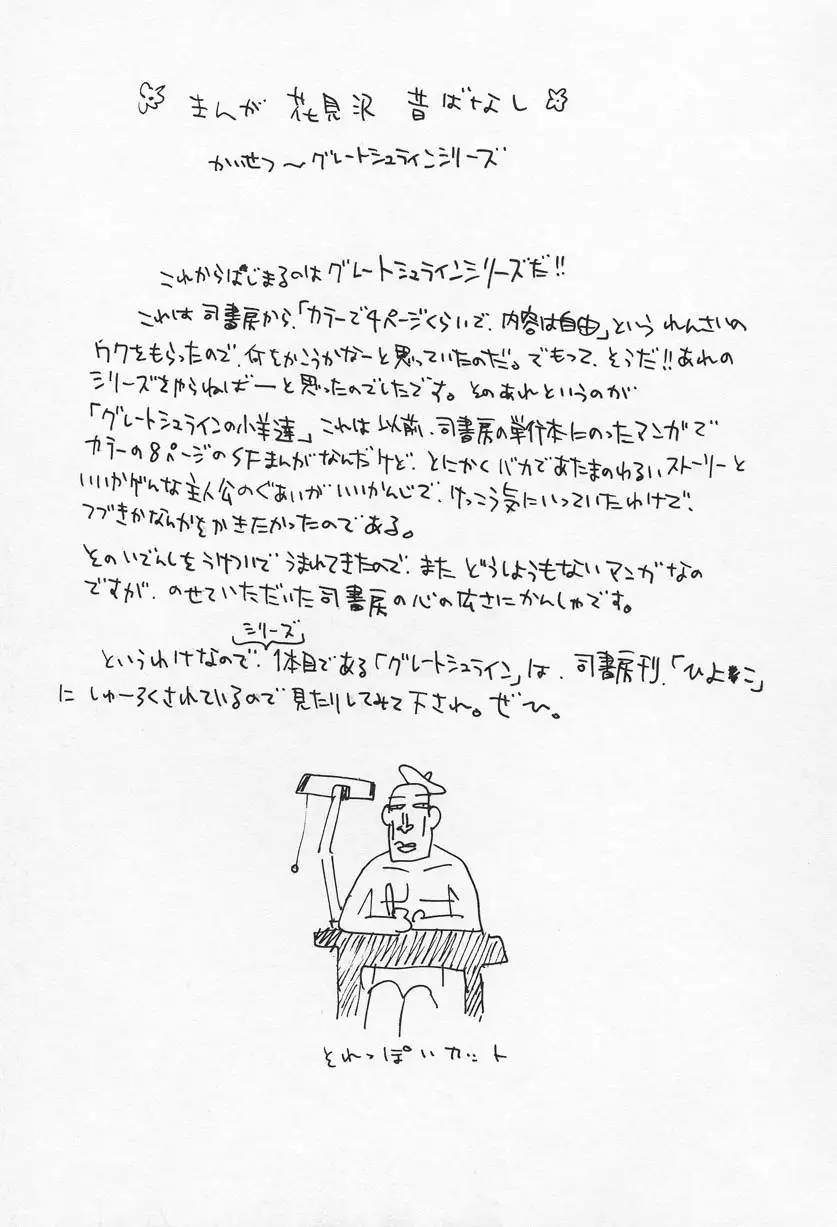 まんが 花見沢 昔ばなし
かいせつ〜グレートシュラインシリーズ
これからはじまるのはグレートシュラインシリーズだ!!
これは司書房から、「カラーで4ページくらいで、内容は自由」という れんさいの
ワクをもらったので、何をかこうかなーと思っていたのだ。でもって、そうだ!!あれの
シリーズをやらねばーと思ったのでしたです。そのあれというのが
「グレートシュラインの小羊達」これは以前、司書房の単行本にのったマンガで
カラーの8ページのSFまんがなんだけど、とにかくバカであたまのわるいストーリーと
いいかげんな主人公のぐあいがいいかんじで、けっこう気にいっていたわけで、
つづきかなんかをかきたかったのである。
そのいでんしをうけついでうまれてきたので、また どうしようもないマンガなの
ですが、のせていただいた司書房の心の広さにかんしゃです。
というわけなので、シリーズ1本目である「グレートシュライン」は、司書房刊、「ひよ こ」
に しゅーろくされているので見たりしてみて下され。ぜひ。
それっぽいカット